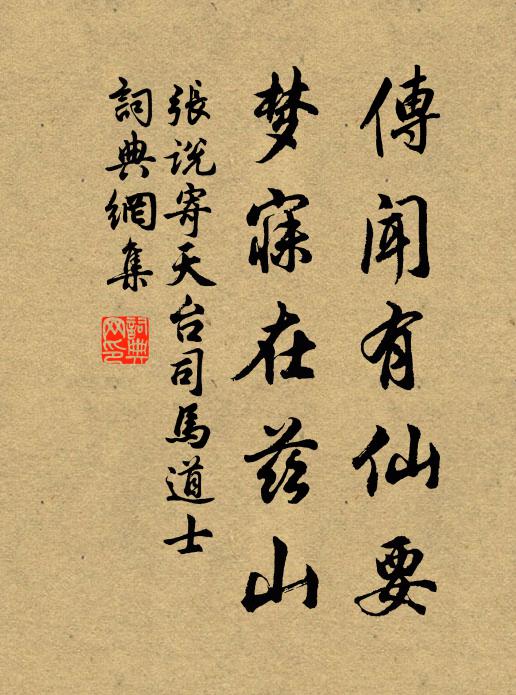 傳聞有仙要
梦寐在茲山
張說寄天台司馬道士
詞典網集
詞典
网印